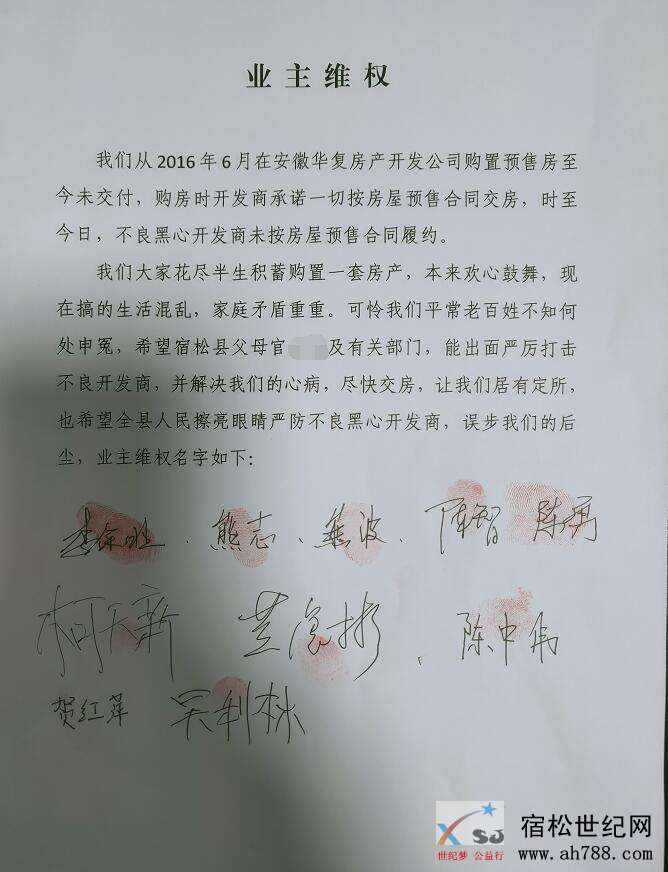 业主维权
我们从2016年6月在安徽华复房产开发公司购置预售房至
今未交付，购房时开发商承诺一切按房屋预售合同交房，时至
今日，不良黑心开发商未按房屋预售合同履约。
我们大家花尽半生积蓄购置一套房产，本来欢心鼓舞，现
在搞的生活混乱，家庭矛盾重重。可怜我们平常老百姓不知何
处申冤，希望宿松县父母官 及有关部门，能出面严厉打击
不良开发商，并解决我们的心病，尽快交房，让我们居有定所，
也希望全县人民擦亮眼睛严防不良黑心开发商，误步我们的后
尘，业主维权名字如下：
熊志、熊波、陈智 陈
柯天新 陈中伟
贺红萍 吴利林
XSJ
世纪梦 公益行
宿松世纪网
www.ah788.com